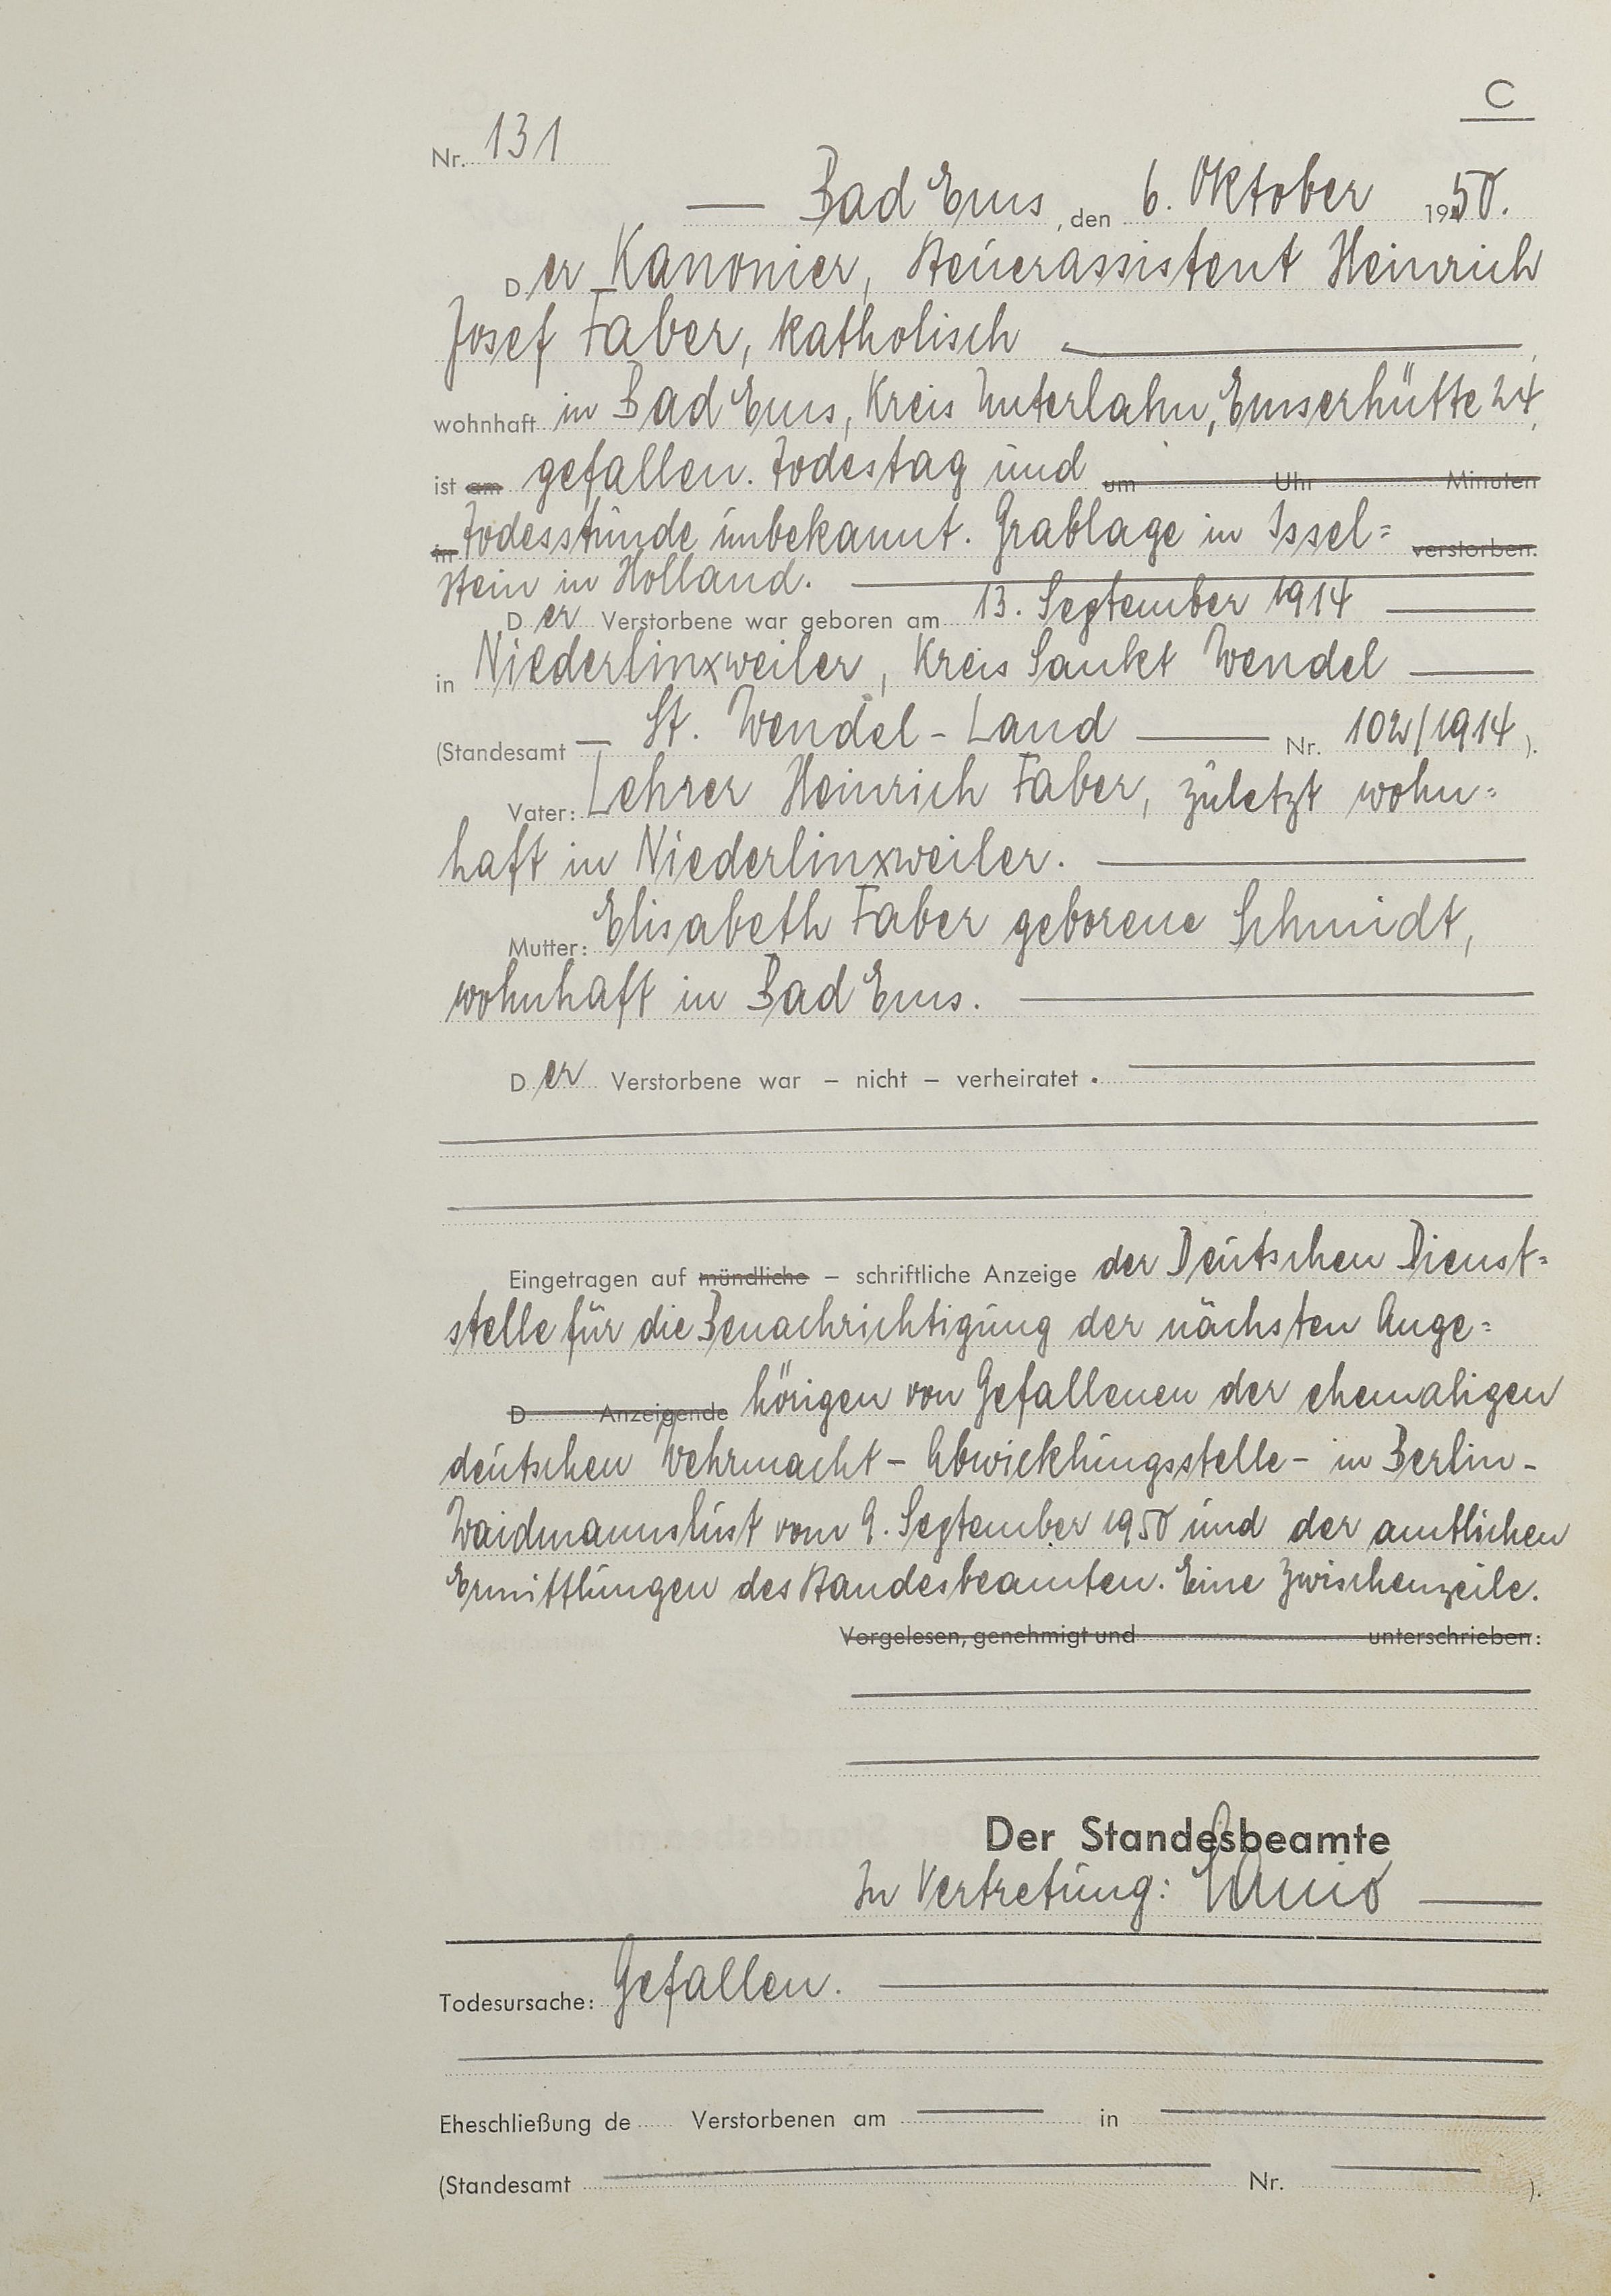 C
Nr. 131
— Bad Ems, den 6. Oktober 1950.
Der Kanonier, Steuerassistent Heinrich
Josef Faber, katholisch
wohnhaft in Bad Ems, Kreis Unterlahn, Emserhütte 24,
ist am gefallen. Todestag und um Uhr Minuten
in Todesstunde unbekannt. Grablage in Issel= verstorben.
stein in Holland.
Der Verstorbene war geboren am 13. September 1914
in Niederlinxweiler, Kreis Sankt Wendel
(Standesamt — St. Wendel-Land — Nr. 102/1914).
Vater: Lehrer Heinrich Faber, zuletzt wohn=
haft in Niederlinxweiler.
Mutter: Elisabeth Faber geborene Schmidt,
wohnhaft in Bad Ems.
Der Verstorbene war – nicht – verheiratet.
Eingetragen auf mündliche – schriftliche Anzeige der Deutschen Dienst=
stelle für die Benachrichtigung der nächsten Ange=
D Anzeigende hörigen von Gefallenen der ehemaligen
deutschen Wehrmacht – Abwicklungsstelle – in Berlin-
Waidmannslust vom 9. September 1950 und der amtlichen
Ermittlungen des Standesbeamten. Eine Zwischenzeile.
Vorgelesen, genehmigt und unterschrieben:
Der Standesbeamte
In Vertretung:
Todesursache: Gefallen.
Eheschließung de Verstorbenen am in
(Standesamt Nr. ).